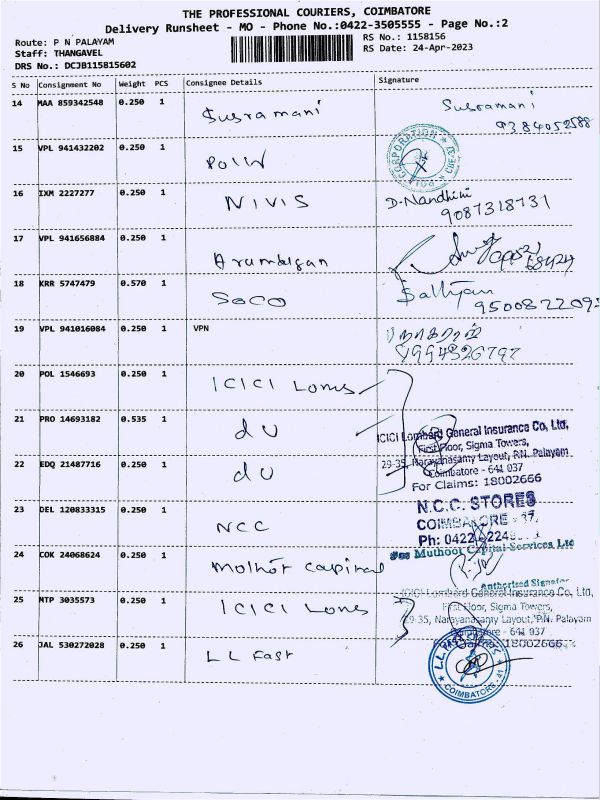 THE PROFESSIONAL COURIERS, COIMBATORE
Delivery Runsheet - MO - Phone No.:0422-3505555 - Page No.:2
Route: P N PALAYAM
Staff: THANGAVEL
DRS No.: DCJB115815602
RS No.: 1158156
RS Date: 24-Apr-2023
S No Consignment No Weight PCS Consignee Details Signature
14 MAA 859342548 0.250 1 Susramani Susramani
9384052588
15 VPL 941432202 0.250 1 POLW
CORPORATION
16 IXM 2227277 0.250 1 NIVIS D-Nandhini
9087318731
17 VPL 941656884 0.250 1
18 KRR 5747479 0.570 1 SOCO
19 VPL 941016084 0.250 1 VPN நாகராஜ்
9994326797
20 POL 1546693 0.250 1 ICICI Loms
21 PRO 14693182 0.535 1 du
ICICI Lombard General Insurance Co, Ltd,
First Floor, Sigma Towers,
22 EDQ 21487716 0.250 1 du
29-35, Narayanasamy Layout, P.N. Palayam
Coimbatore - 641 037
For Claims: 18002666
23 DEL 120833315 0.250 1 NCC
N.C.C. STORES
COIMBATORE - 37.
Ph: 0422
24 COK 24068624 0.250 1 Mothot capital
Muthoot Capital Services Ltd
Authorized Signator
25 MTP 3035573 0.250 1 ICICI Loms
ICICI Lombard General Insurance Co, Ltd,
First Floor, Sigma Towers,
29-35, Narayanasamy Layout, P.N. Palayam
Coimbatore - 641 037
For Claims: 18002666
26 JAL 530272028 0.250 1 LL Fast
COIMBATORE - 41